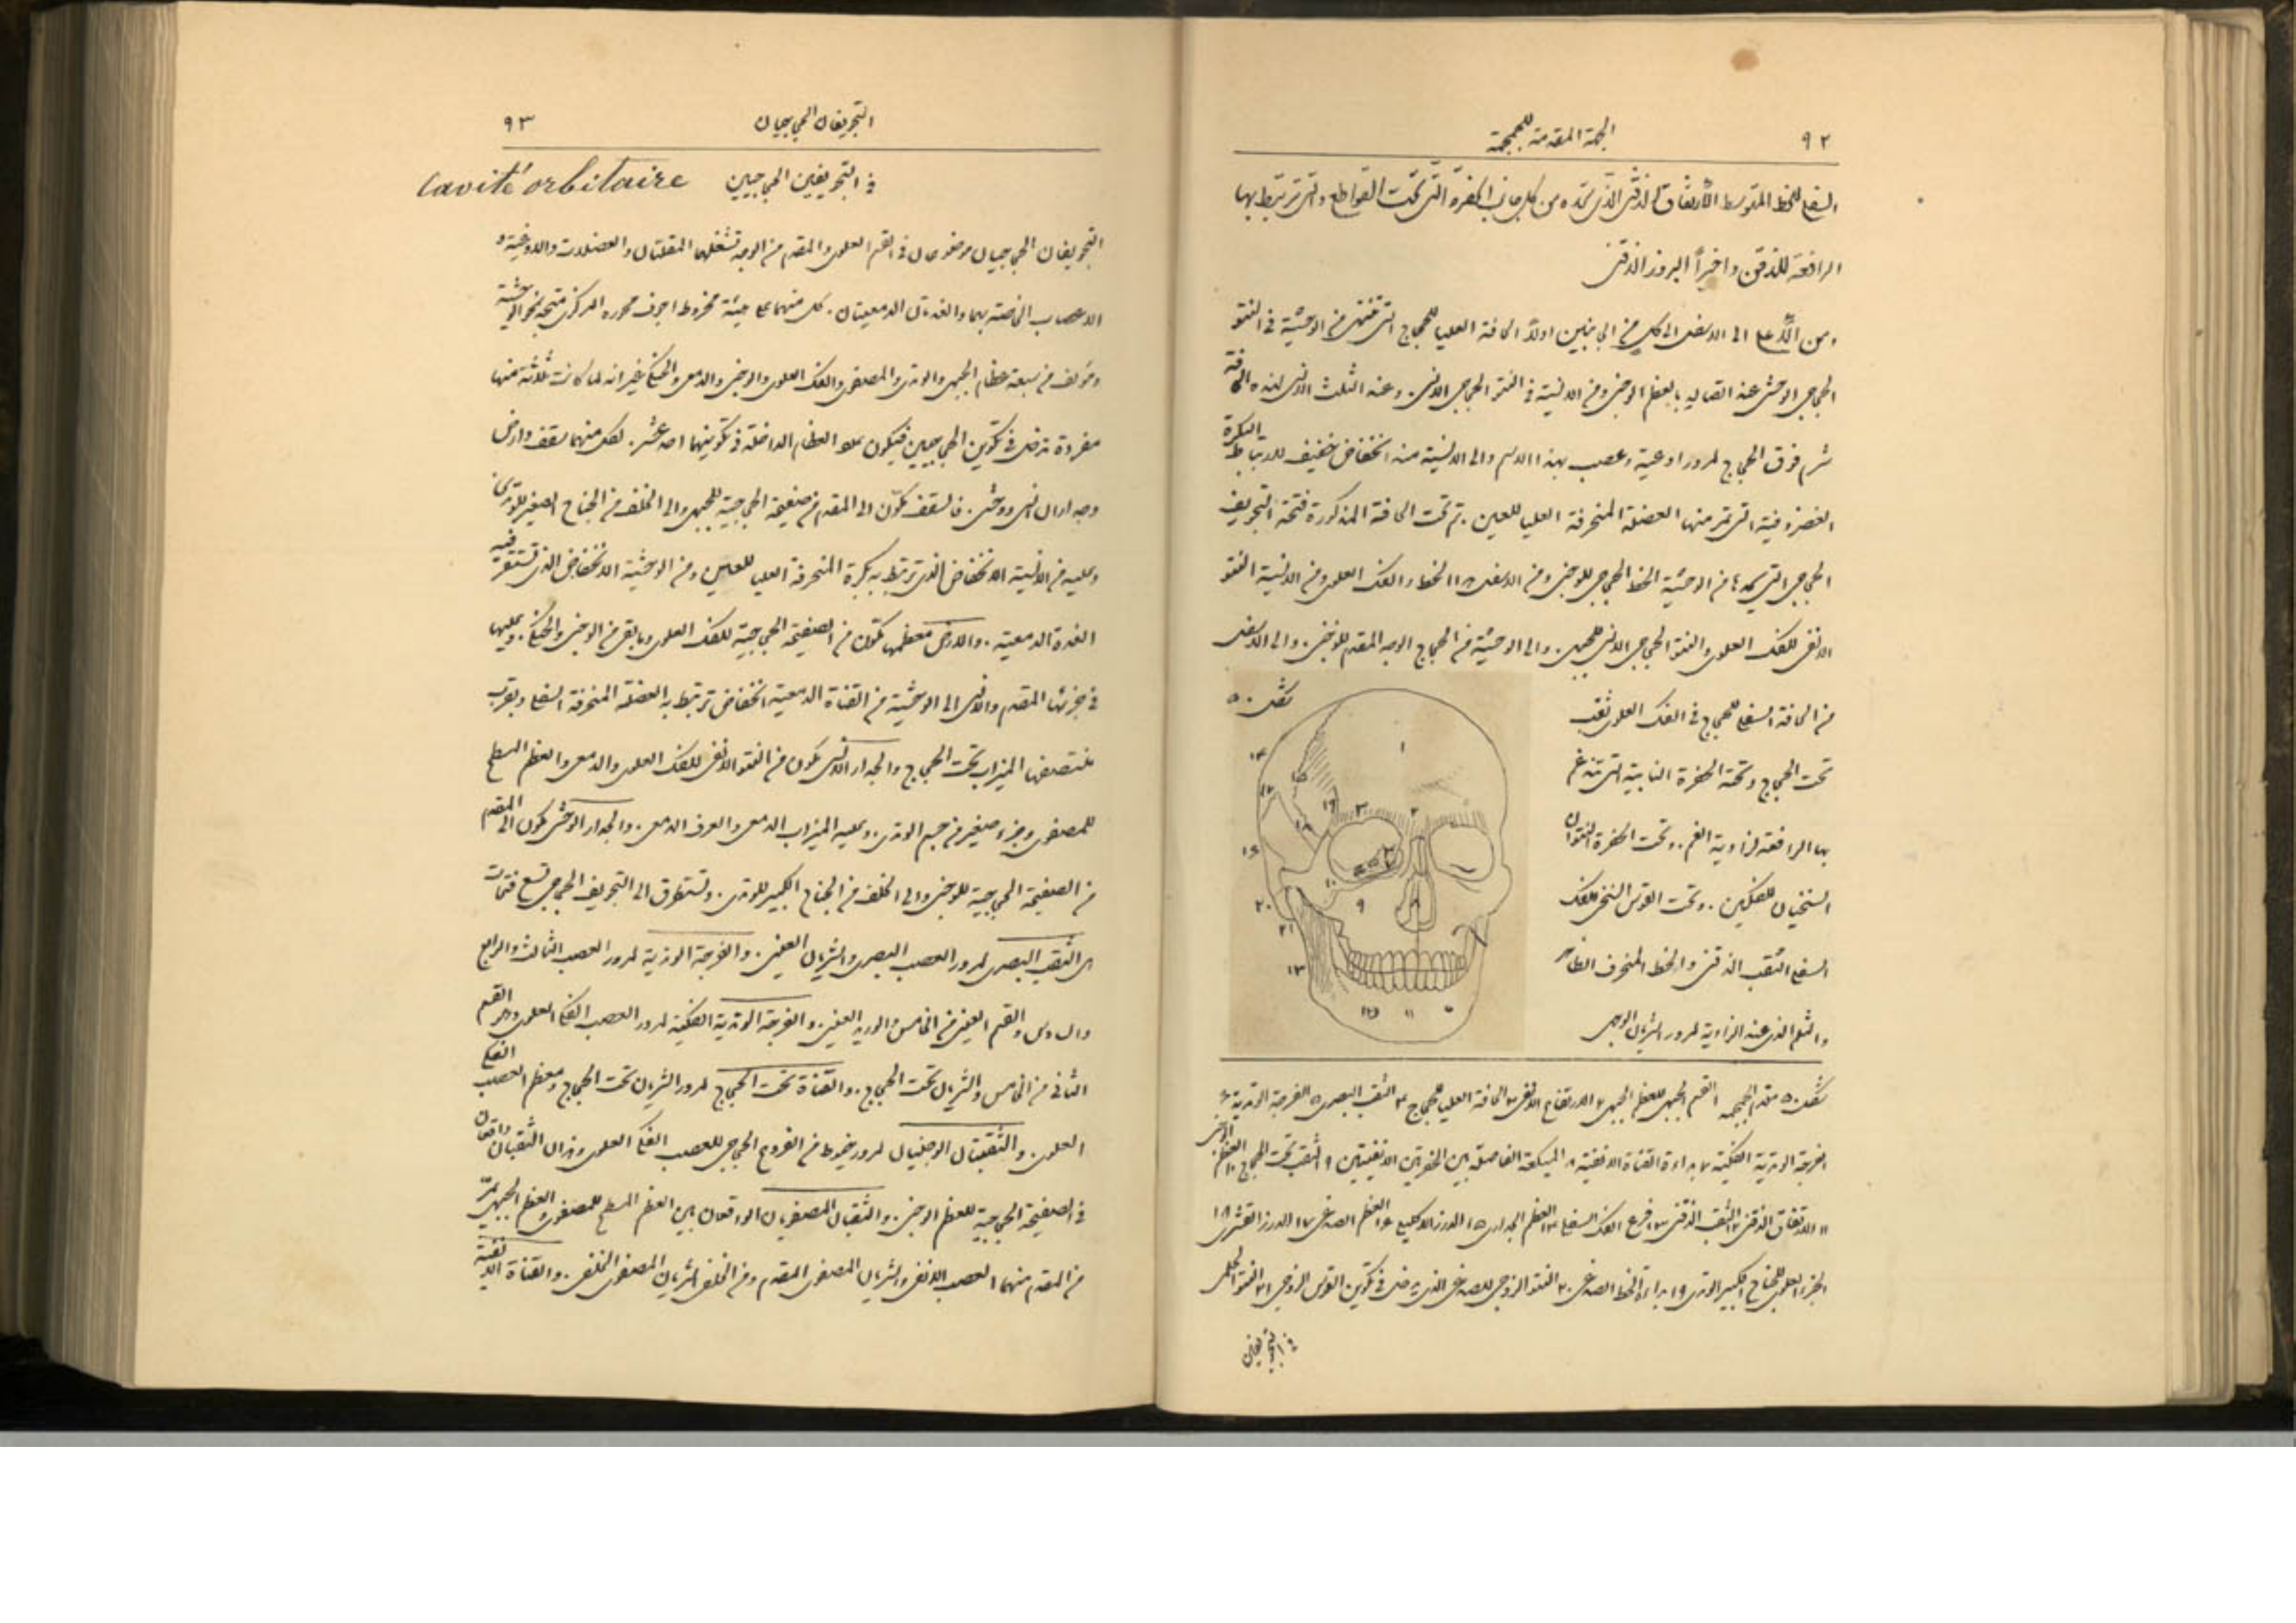 ٩٢
الجهة المقدمة للجمجمة
السفلى للخط المتوسط الارتفاق الذقنى الذى تحده من كل جانب الحفرة التى تحت القواطع والتى ترتبط بها
الرافعة للذقن واخيراً البروز الذقنى
ومن الأعلى الى الاسفل الى كل من الجانبين اولاً الحافة العليا للحجاج التى تنتهى من الوحشية فى النتو
الحجاجى الوحشى عند اتصاله بالعظم الوجنى ومن الانسية فى النتو الحجاجى الانسى وعند الثلث الانسى لهذه الحافة
شرم فوق الحجاج لمرور اوعية وعصب بهذا الاسم والى الانسية منه انخفاض خفيف لارتباط البكرة
الغضروفية التى تمر منها العضلة المنحرفة العليا للعين . ثم تحت الحافة المذكورة فتحة التجويف
الحجاجى التى يحدها من الوحشية الحجاجى للوجنى ومن الاسفل الفك العلوى ومن الانسية النتو
الانفى للفك العلوى والنتو الحجاجى الانسى للجبهى . والى الوحشية من الحجاج الوجه المقدم للوجنى . والى الاسفل
من الحافة السفلى للحجاج فى الفك العلوى ثقب
تحت الحجاج وتحته الحفرة النابية التى تندغم
بها الرافعة لزاوية الفم . وتحت الحفرة النتوان
السنخيان للفكين . وتحت القوس السنخى للفك
السفلى الثقب الذقنى والخط المنحرف الظاهر
والثلم الذى عند الزاوية لمرور الشريان الوجهى
شكل ٥٠
١
٢
٣
٩
١٠
١١
١٣
٢٠
٢١
شكل ٥٠ مقدم الجمجمة ١ القسم الجبهى للعظم الجبهى ٢ الارتفاع الانفى ٣ الحافة العليا للحجاج ٤ الثقب البصرى ٥ الفرجة الوتدية ٦
الفرجة الوتدية الفكية ٧ بداءة القناة الانفية ٨ الفاصلة بين الحفرتين الانفيتين ٩ الثقب تحت الحجاج ١٠ العظم
١١ الارتفاق الذقنى ١٢ الثقب الذقنى ١٣ فرع الفك السفلى ١٤ العظم الجدارى ١٥ الدرز الاكليلى ١٦ العظم الصدغى ١٧ الدرز القشرى ١٨
الجزء العلوى للجناح الكبير الوتدى ١٩ بداءة الخط الصدغى ٢٠ النتو الزوجى للصدغى الذى يدخل فى تكوين القوس الزوجى ٢١ النتو الحلمى
فى التجويفين
التجويفان الحجاجيان
٩٣
فى التجويفين الحجاجيين Cavité orbitaire
التجويفان الحجاجيان موضوعان فى القسم العلوى والمقدم من الوجه تشغلهما المقلتان والعضلات والاوعية و
الاعصاب الخاصة بهما والغدتان الدمعيتان . كل منهما على هيئة مخروط اجوف محوره المركزى متجه نحو الوحشية
ومؤلف من سبعة عظام الجبهى والوتدى والمصفوى والفك العلوى والوجنى والدمعى والحنكى غير انه لما كانت ثلاثة منها
مفردة تدخل فى تكوين الحجاجيين فيكون عدد العظام الداخلة فى تكوينهما احد عشر . لكل منهما سقف وارض
وجداران انسى ووحشى . فالسقف تكوّن الى المقدم من صفيحة الحجاجية للجبهى والى الخلف من الجناح الصغير للوتدى
وعليه من الانسية الانخفاض الذى ترتبط به بكرة المنحرفة العليا للعين ومن الوحشية الانخفاض الذى تستقر فيه
الغدة الدمعية . والارض معظمها تكوّن من الصفيحة الحجاجية للفك العلوى وما بقى من الوجنى والحنكى . وعليها
فى جزئها المقدم والانسى الى الوحشية من القناة الدمعية انخفاض ترتبط به العضلة المنحرفة السفلى وبقرب
منتصفها الميزاب تحت الحجاج والجدار الانسى تكون من النتو الانفى للفك العلوى والدمعى والعظم المسطح
للمصفوى وجزء صغير من جسم الوتدى . وعليه الميزاب الدمعى والعرف الدمعى . والجدار الوحشى تكون الى المقدم
من الصفيحة الحجاجية للوجنى والى الخلف من الجناح الكبير للوتدى . وتستطرق الى التجويف الحجاجى تسع فتحات
هى الثقب البصرى لمرور العصب البصرى والشريان العينى . والفرجة الوتدية لمرور العصب الثالث والرابع
والسادس والقسم العينى من الخامس والوريد العينى . والفرجة الوتدية الفكية لمرور العصب الفكى العلوى وهو القسم
الثانى من الخامس والشريان تحت الحجاج . والقناة تحت الحجاج لمرور الشريان تحت الحجاج ومعظم العصب الفكى
العلوى . والثقبان الوجنيان لمرور خيوط من الفروع الحجاجى للعصب الفكى العلوى وهذان الثقبان واقعان
فى الصفيحة الحجاجية للعظم الوجنى . والثقبان المصفويان الواقعان بين العظم المسطح للمصفوى والعظم الجبهى يمر
من المقدم منهما العصب الانفى والشريان المصفوى المقدم ومن الخلفى الشريان المصفوى الخلفى . والقناة الانفية